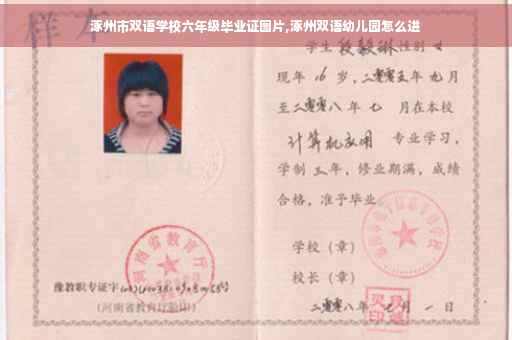 样本
涿州市双语学校六年级毕业证图片,涿州双语幼儿园怎么进
学生 段毅琳 性别 女
现年 16 岁,二零零五年 九月
至二零零八年 七 月在本校
计算机应用 专业学习,
学制 三年,修业期满,成绩
合格,准予毕业
学校(章)
校长(章)
二零零八年 七 月 一 日
河南省教育厅
豫教职专证字
(河南省教育厅验印)